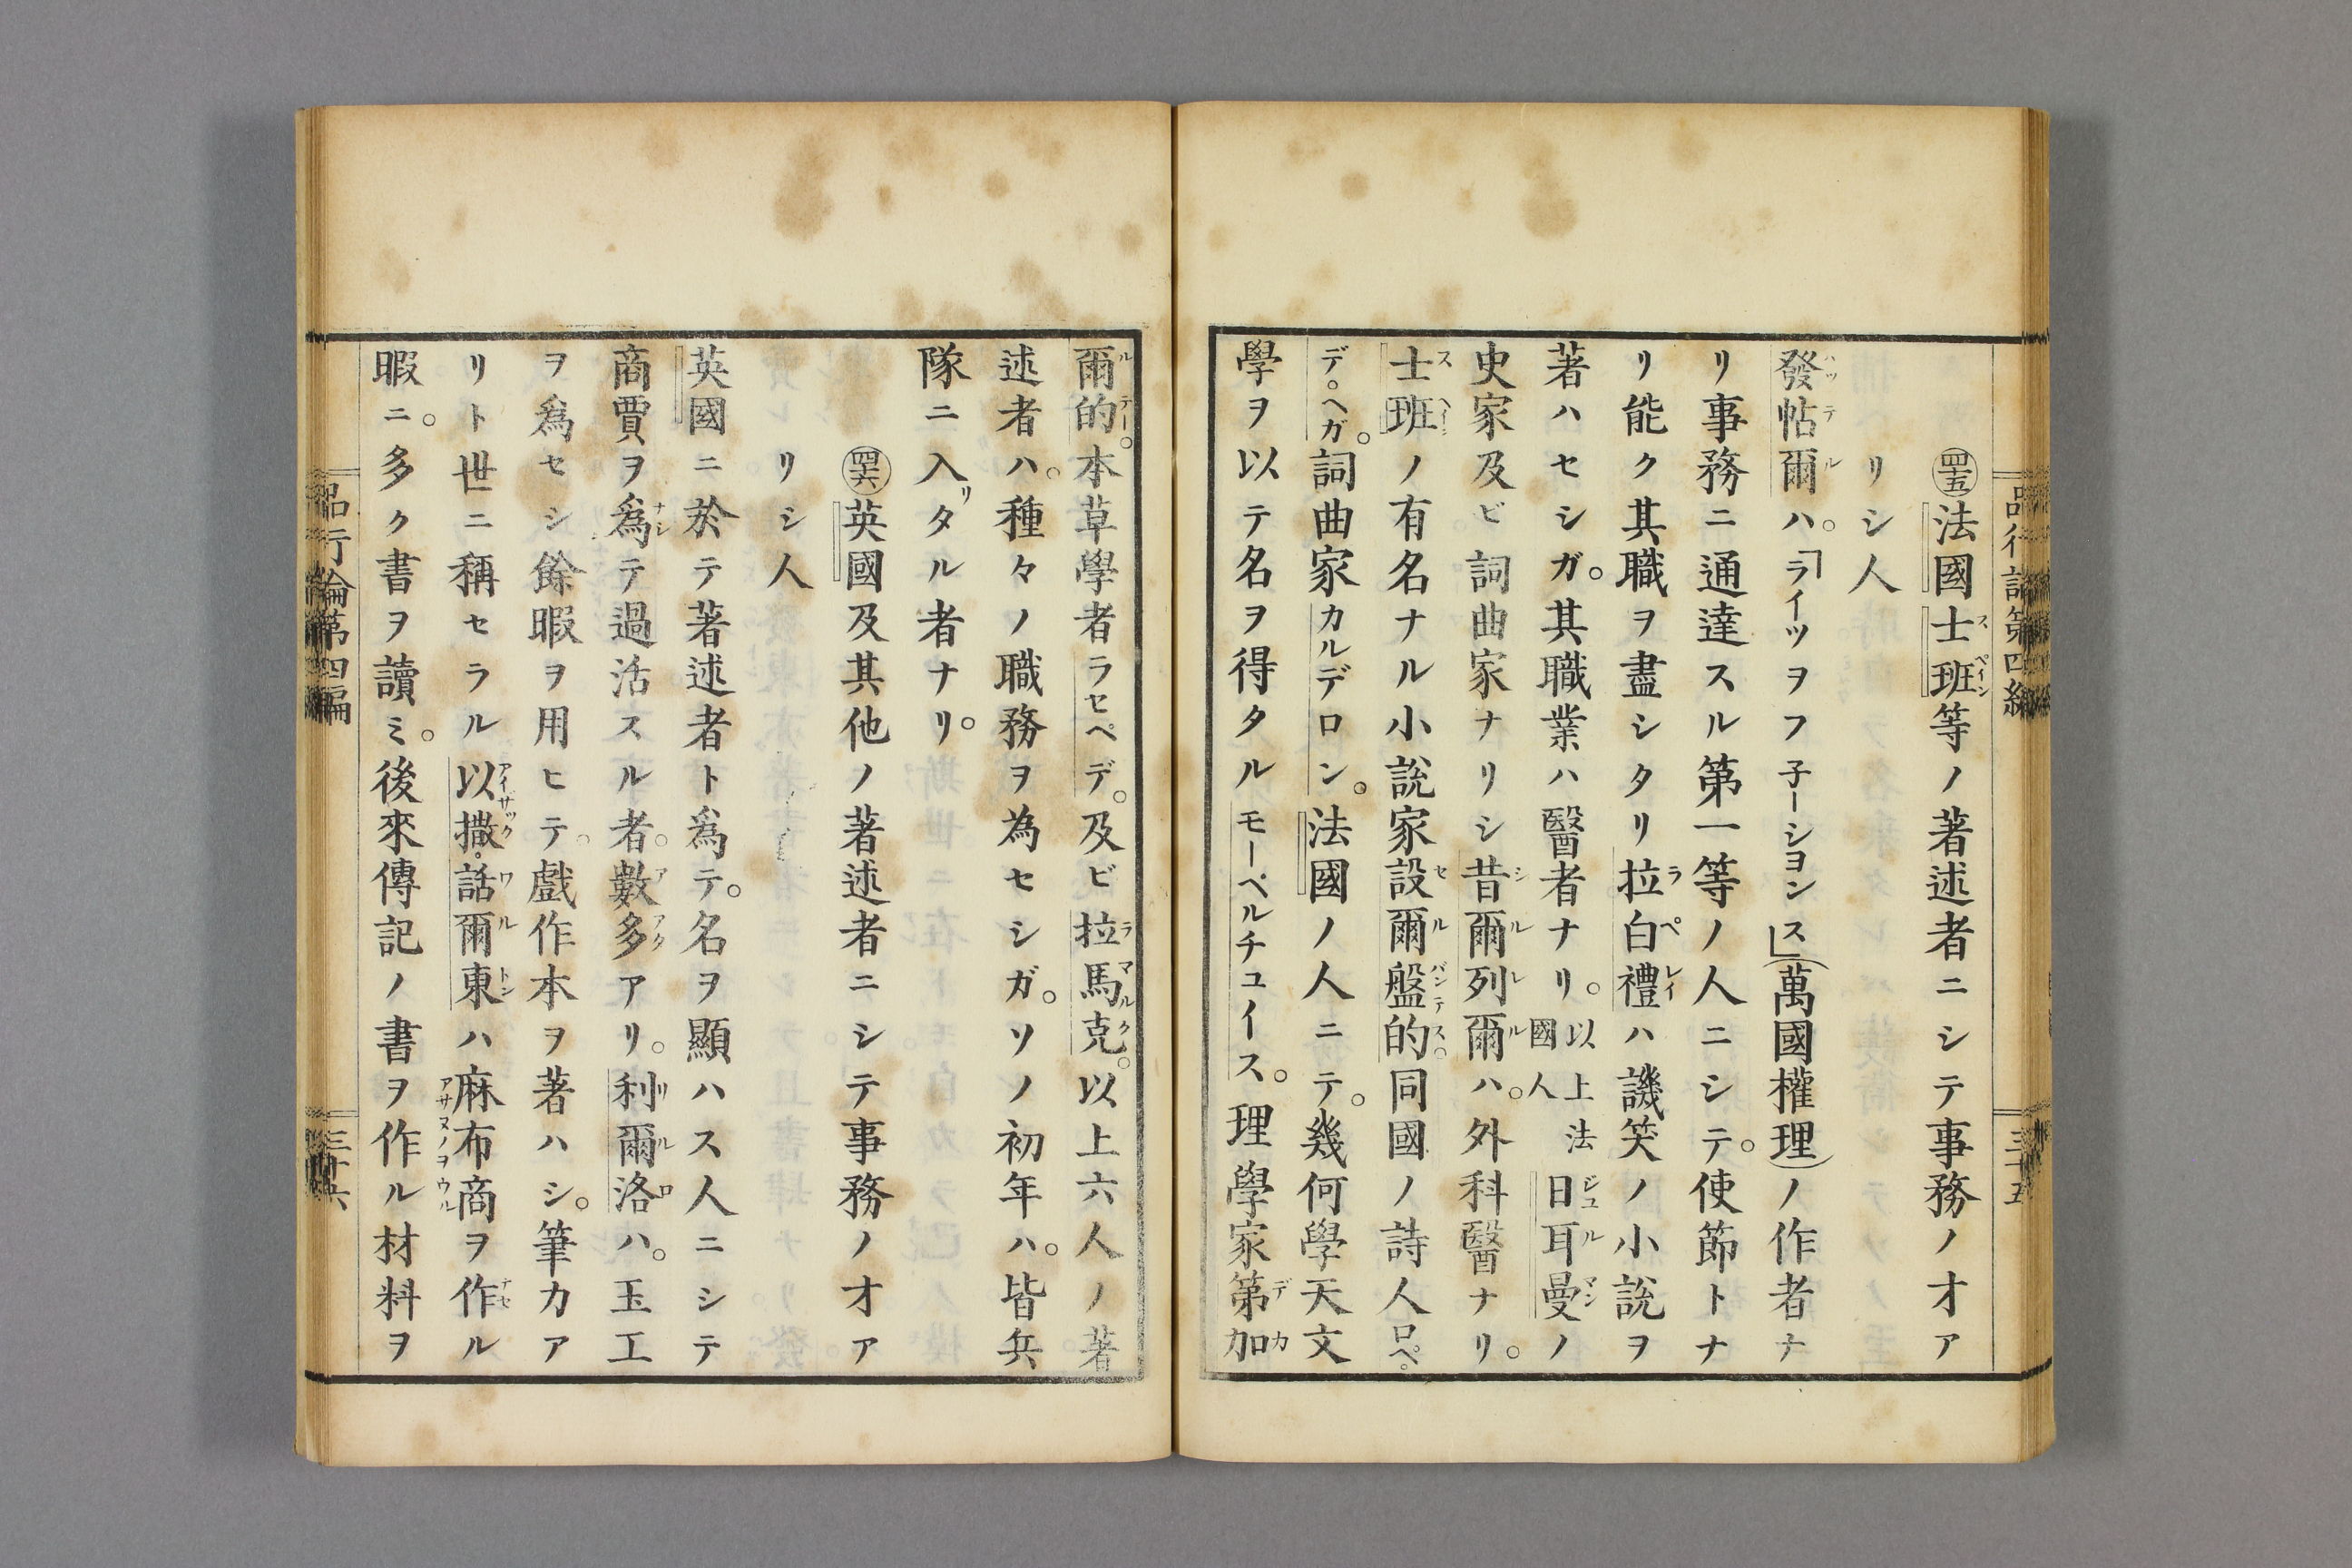 品行論第四編
三十五
㊺法國士班等ノ著述者ニシテ事務ノオア
リシ人
發帖爾ハ。「ライツヲフ子ーシヨンス」(萬國權理)ノ作者ナ
リ事務ニ通達スル第一等ノ人ニシテ。使節トナ
リ能ク其職ヲ盡シタリ拉白禮ハ譏笑ノ小說ヲ
著ハセシガ。其職業ハ醫者ナリ。以上法國人日耳曼ノ
史家及ビ詞曲家ナリシ昔爾列爾ハ。外科醫ナリ。
士班ノ有名ナル小說家設爾盤的同國ノ詩人ロペ。
デ。ヘガ。詞曲家カルデロン。法國ノ人ニテ。幾何學天文
學ヲ以テ名ヲ得タルモーペルチュイース。理學家第加
爾的。本草學者ラセペデ。及ビ拉馬克。以上六人ノ著
述者ハ。種々ノ職務ヲ為セシガ。ソノ初年ハ。皆兵
隊ニ入リタル者ナリ。
㊻英國及其他ノ著述者ニシテ事務ノオア
リシ人
英國ニ於テ著述者ト爲テ。名ヲ顯ハス人ニシテ
商賈ヲ爲テ過活スル者。數多アリ。利爾洛ハ。玉工
ヲ爲セシ餘暇ヲ用ヒテ。戲作本ヲ著ハシ。筆力ア
リト世ニ稱セラル以撒。話爾東ハ麻布商ヲ作ル
暇ニ。多ク書ヲ讀ミ。後來傳記ノ書ヲ作ル材料ヲ
品行論第四編
三十六